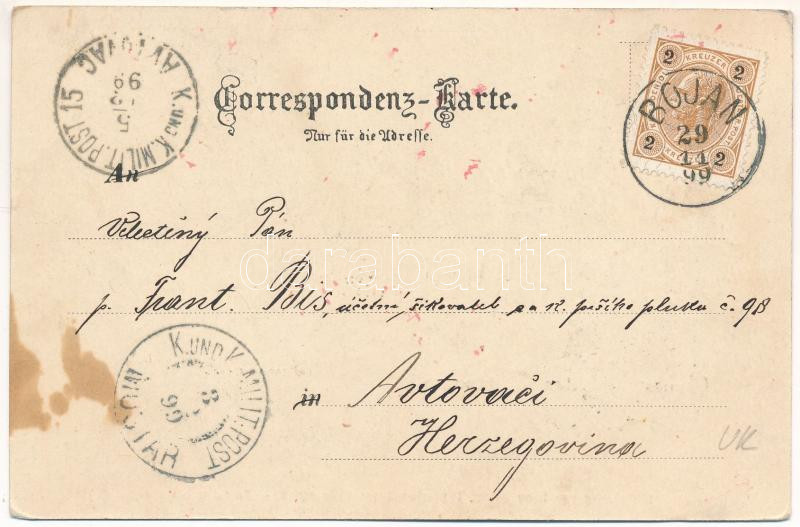 K. UND K. MILIT. POST 15
AVTOVAC
5/3
99
Correspondenz-Karte.
Nur für die Adresse.
2 KREUZER 2
2 2
BOJAN
29
11
99
An
Velectěný Pán
p. Frant. Bis, účetní šikovatel c. a k. pěšího pluku č. 98
in Avtovači
Herzegovina
K. UND K. MILIT. POST
MOSTAR
3
99
UK
darabanth